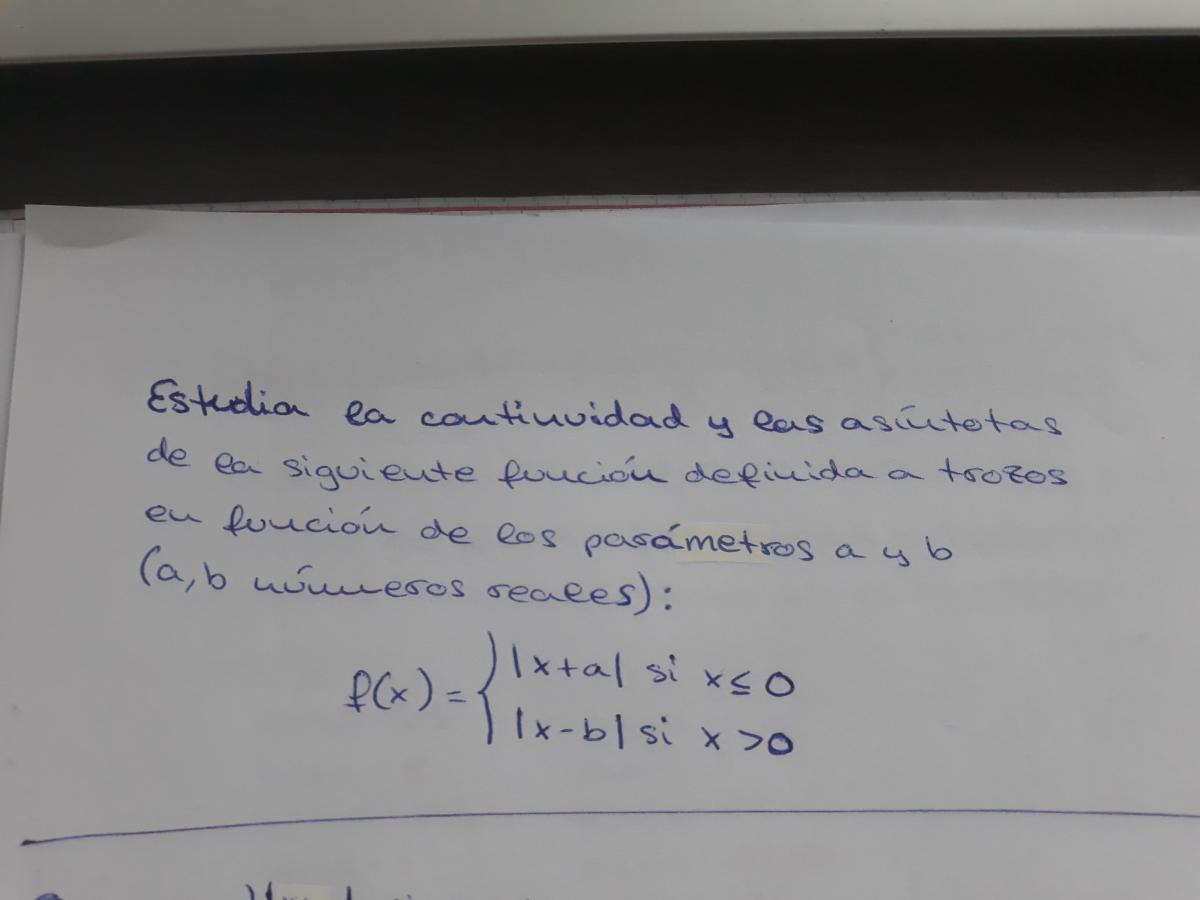 Estudia la continuidad y las asíntotas
de la siguiente función definida a trozos
en función de los parámetros a y b
(a,b números reales):
f(x) = { |x+a| si x ≤ 0
|x-b| si x > 0